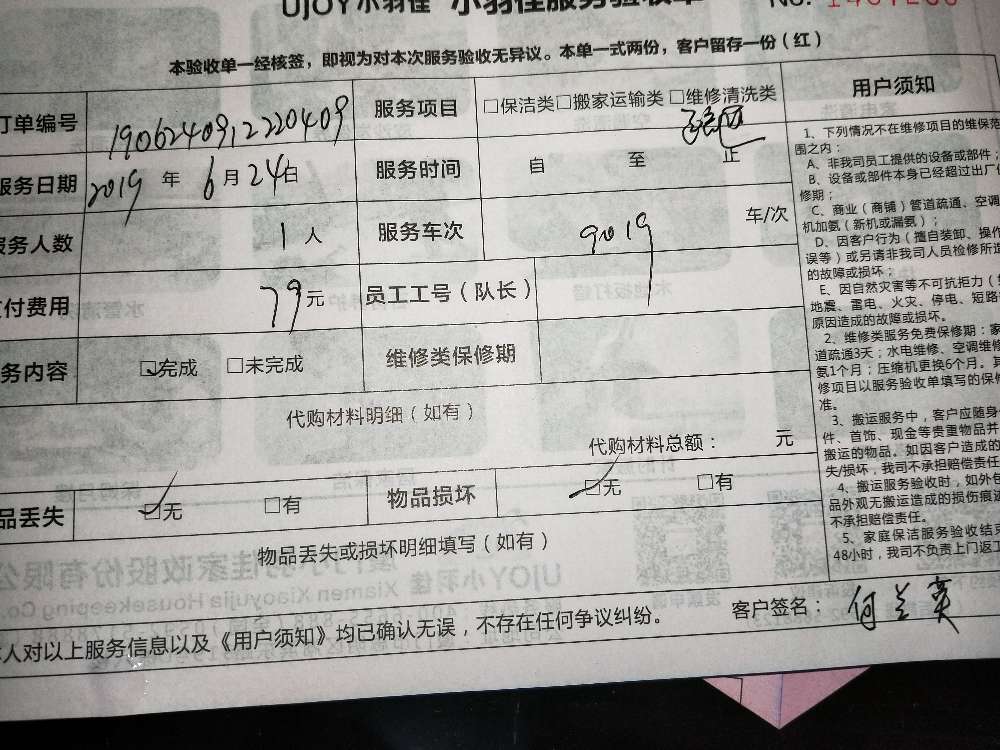 UJOY小羽佳 小羽佳服务验收单
No.
本验收单一经核签，即视为对本次服务验收无异议。本单一式两份，客户留存一份（红）
订单编号 1906240912220409 服务项目 □保洁类□搬家运输类 □维修清洗类
服务日期 2019 年 6 月 24 日 服务时间 自 至 止
服务人数 1 人 服务车次 车/次
支付费用 79 元 员工工号（队长） 9019
服务内容 ☑完成 □未完成 维修类保修期
代购材料明细（如有）
代购材料总额： 元
物品丢失 ☑无 □有 物品损坏 ☑无 □有
物品丢失或损坏明细填写（如有）
本人对以上服务信息以及《用户须知》均已确认无误，不存在任何争议纠纷。 客户签名： 何兰英
用户须知
1、下列情况不在维修项目的维保范
围之内：
A、非我司员工提供的设备或部件；
B、设备或部件本身已经超过出厂保
修期；
C、商业（商铺）管道疏通、空调
机加氨（新机或漏氨）；
D、因客户行为（擅自装卸、操作
误等）或另请非我司人员检修所造
的故障或损坏；
E、因自然灾害等不可抗拒力（如
地震、雷电、火灾、停电、短路
原因造成的故障或损坏。
2、维修类服务免费保修期：家
道疏通3天；水电维修、空调维修
氨1个月；压缩机更换6个月。其
修项目以服务验收单填写的保修
准。
3、搬运服务中，客户应随身
件、首饰、现金等贵重物品并
搬运的物品。如因客户造成的
失/损坏，我司不承担赔偿责任
4、搬运服务验收时，如外包
品外观无搬运造成的损伤痕迹
不承担赔偿责任。
5、家庭保洁服务验收结束
48小时，我司不负责上门返工